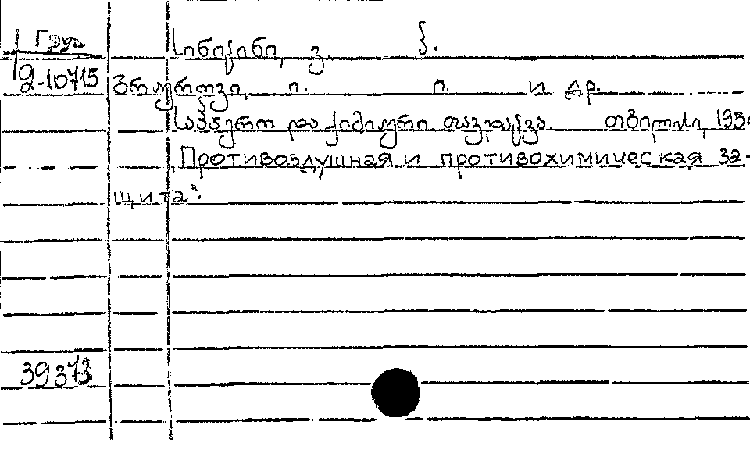 Груз
2-10715
სინიცინი, ვ. ნ.
გრიგოროვი, ი. ი. и др.
საჰაერო და ქიმიური თავდაცვა. თბილისი, 193
"Противовоздушная и противохимическая за-
щита".
39373